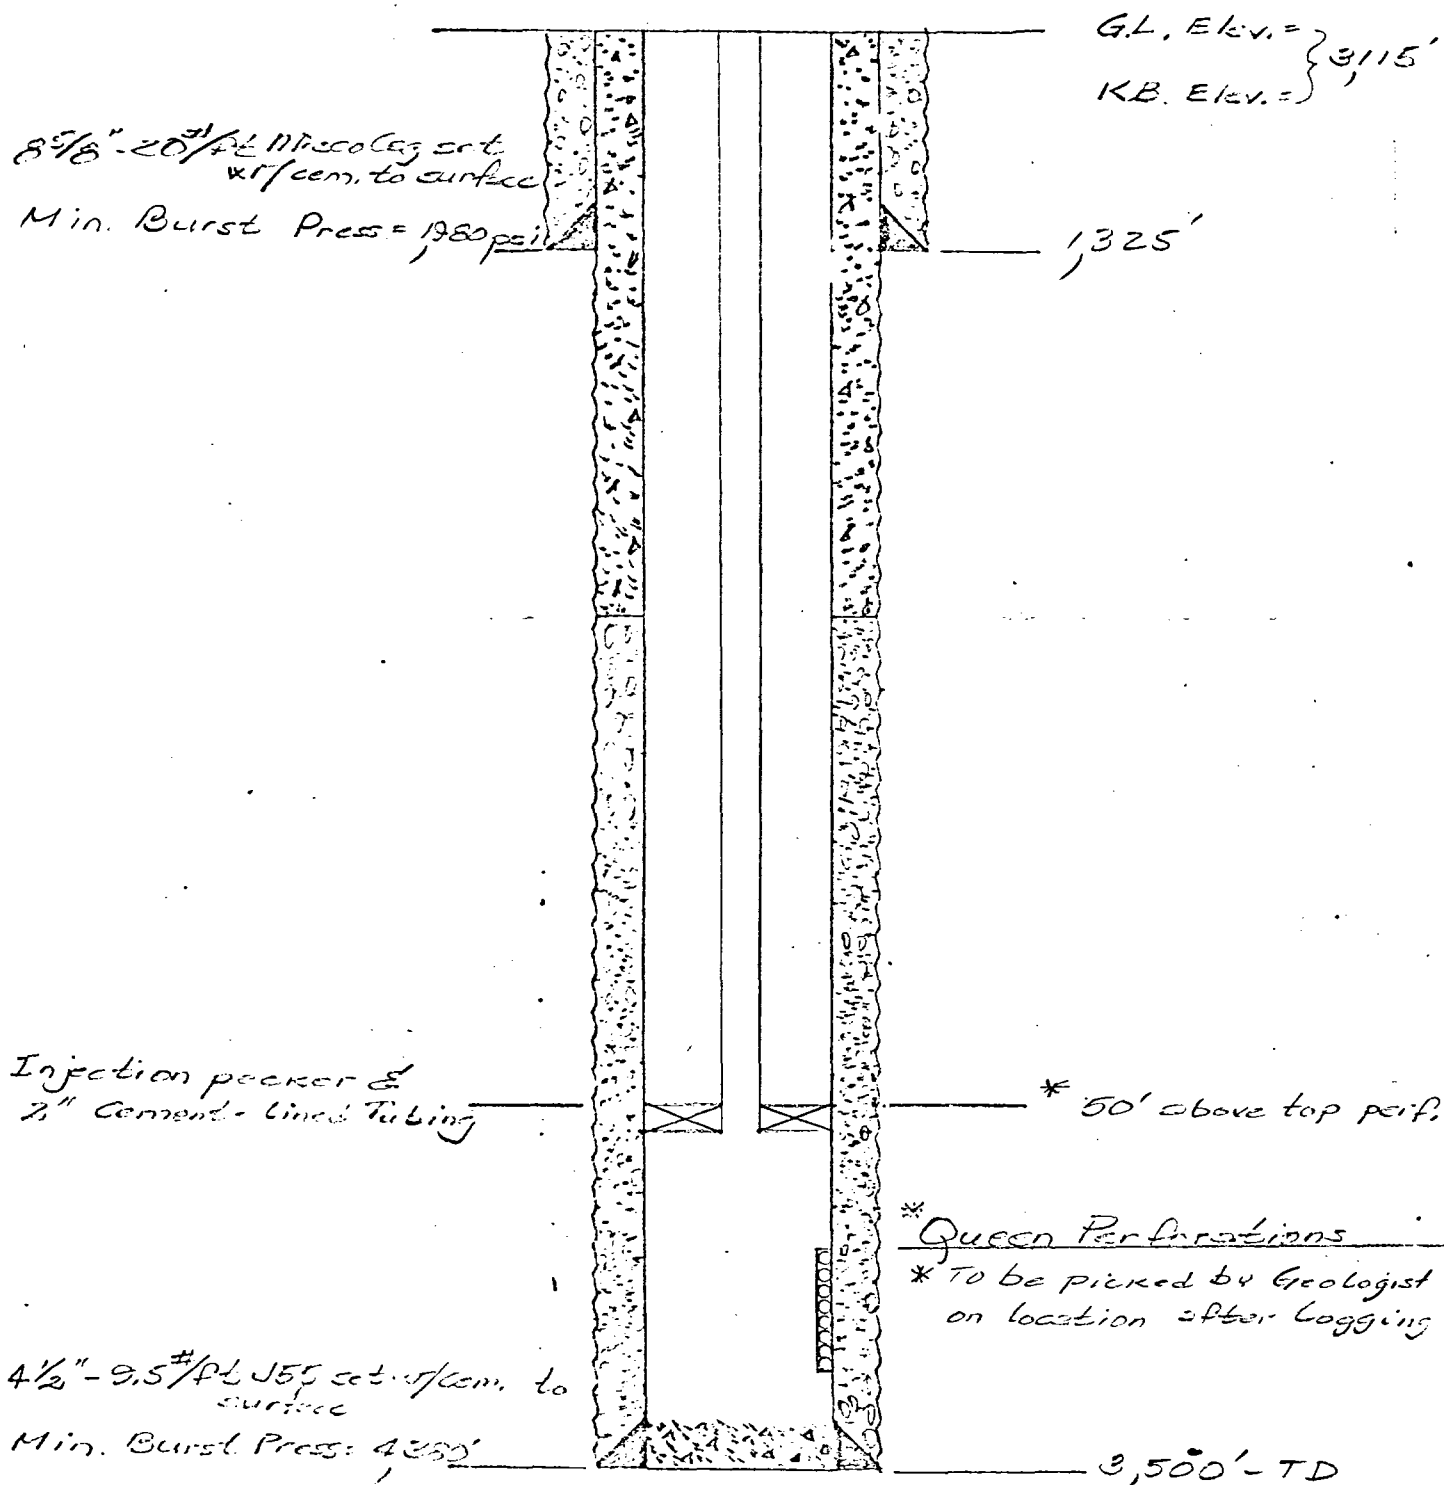 G.L. Elev. =
3,115'
K.B. Elev. =
8 5/8" - 20#/ft Csg set
w/cem. to surface
Min. Burst Press = psi
1,325'
Injection packer &
2" Cement-Lined Tubing
* 50' above top perf.
* Queen Perforations
* To be picked by Geologist
on location after Logging
4 1/2" - 9.5#/ft J55 set w/cem. to
surface
Min. Burst Press:
3,500' - TD